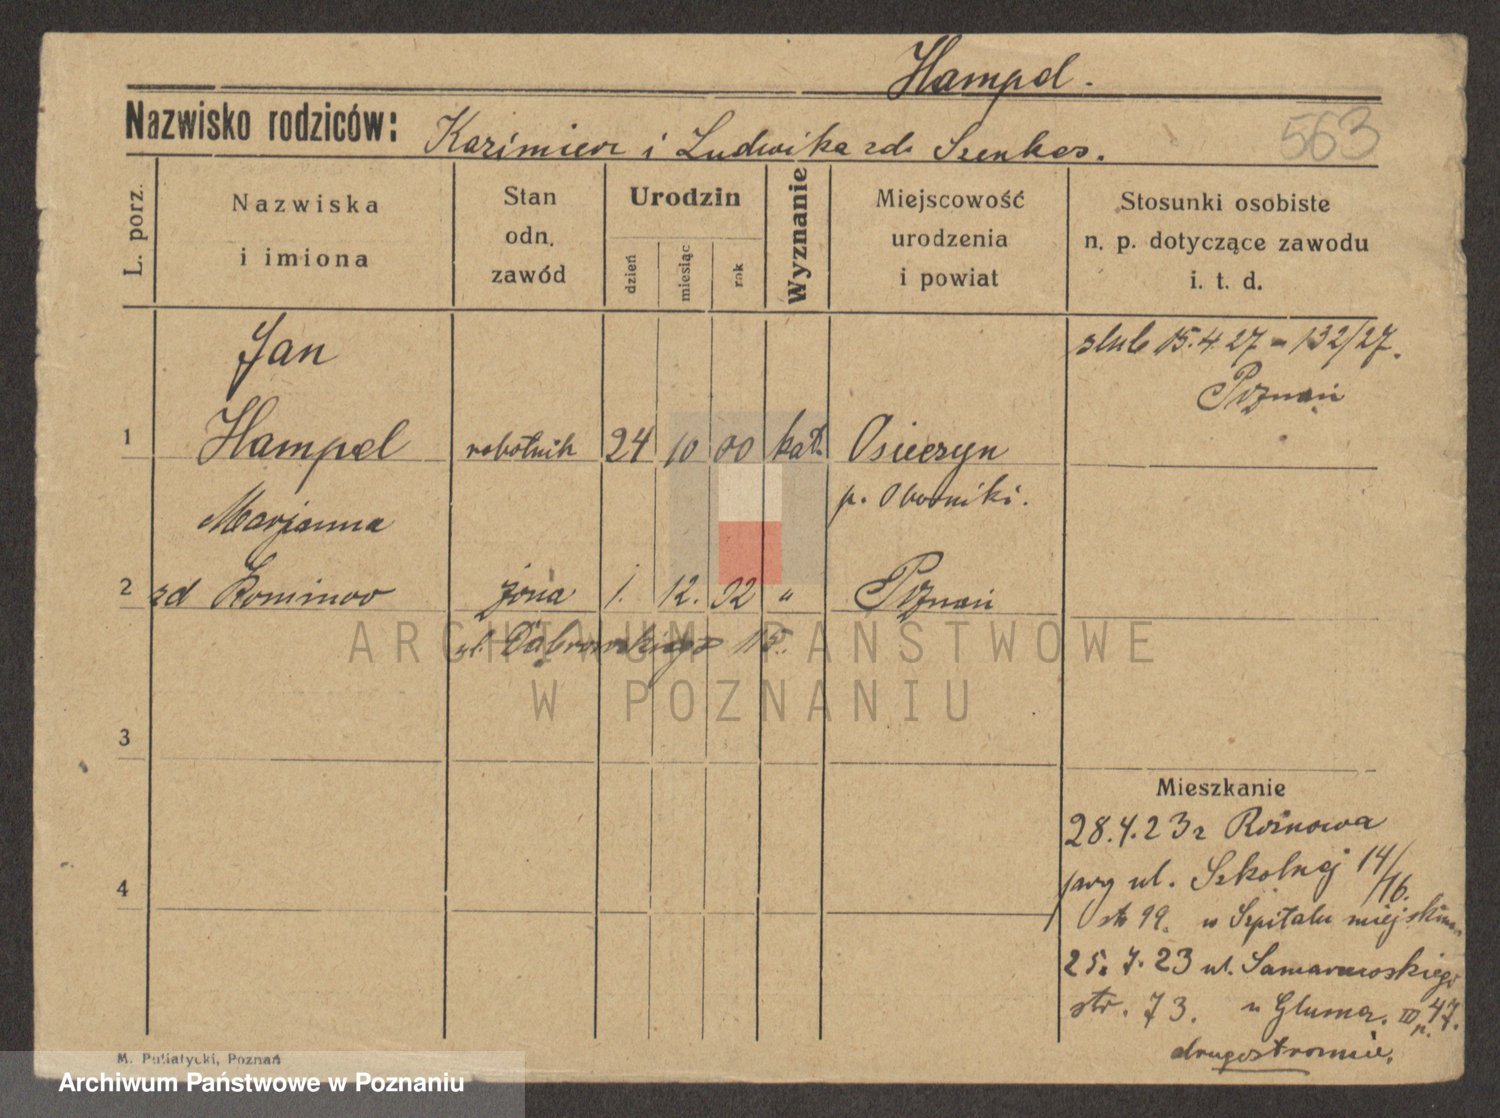 Hampel.
Nazwisko rodziców: Kazimierz i Ludwika zd. Szenkes.
563
L. porz.
Nazwiska
i imiona
Stan
odn.
zawód
Urodzin
dzień
miesiąc
rok
Wyznanie
Miejscowość
urodzenia
i powiat
Stosunki osobiste
n. p. dotyczące zawodu
i. t. d.
Jan
ślub 15.4.27 - 132/27.
Poznań
1 Hampel robotnik 24 10 00 kat. Osieczyn
p. Oborniki.
Marjanna
2 zd żona 1. 12. 02 " Poznań
ul. Dąbrowskiego 15.
ARCHIWUM PAŃSTWOWE
W POZNANIU
3
Mieszkanie
28.4.23 z Rożnowa
przy ul. Szkolnej 14/16.
str 99. w Szpitalu miejskim.
25.7.23 ul.
str. 73. u III p. 47.
drugostronnie.
4
M. Putiatycki, Poznań
Archiwum Państwowe w Poznaniu